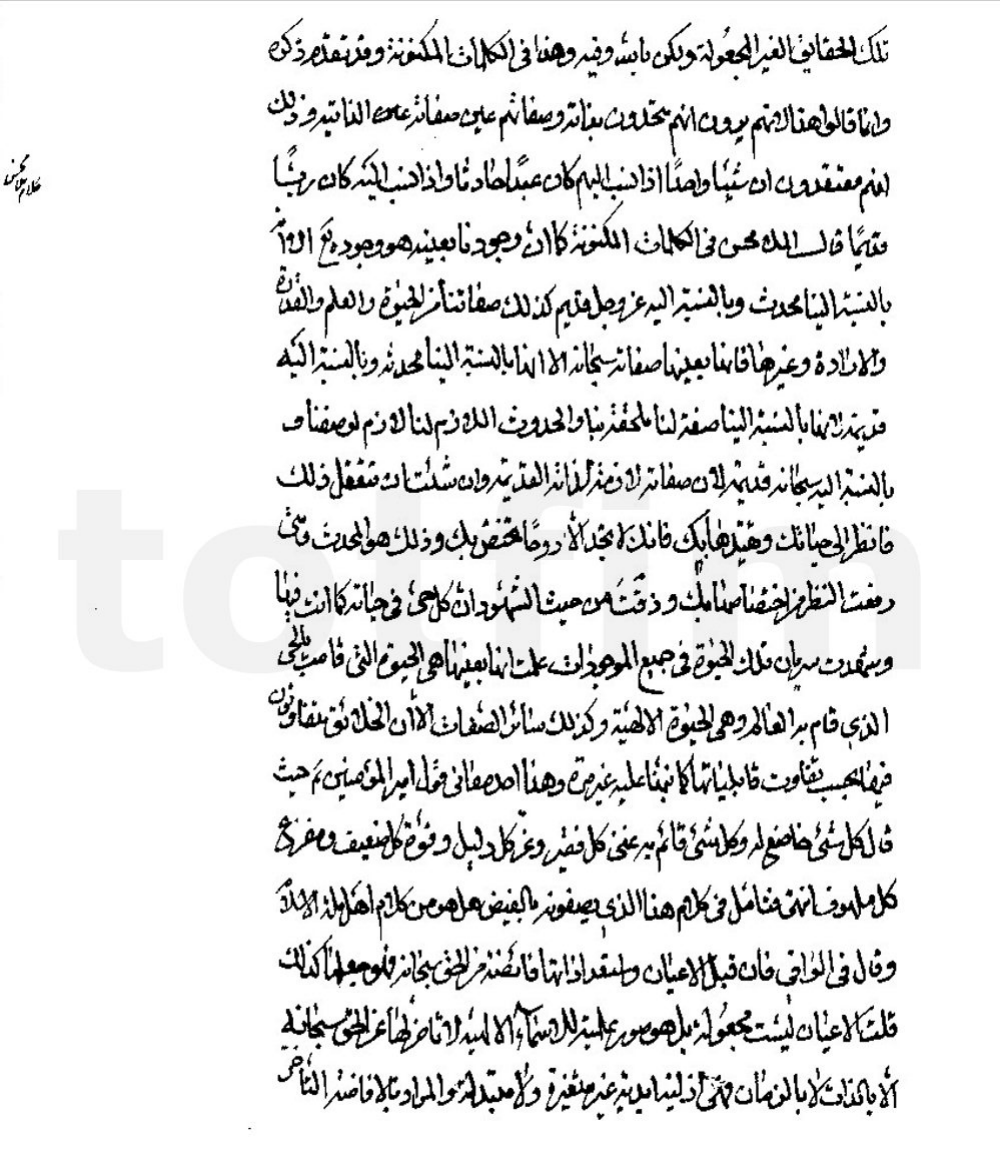 تلك الحقايق الغير المجعولة ويكون بائنه وفيه وهذا في الكلمات المكنونة وقد تقدم ذكره
وانما قالوا هذا لانهم يرون انهم متحدون بذاته وصفاتهم عين صفاته عين الذاتية وذلك
انهم معتقدون ان شيئا واحدًا اذا نسب اليهم كان عبدًا حادثا واذا نسب اليه كان ربًّا
قديمًا قال الملا محسن في الكلمات المكنونة كما ان وجودنا بعينه هو وجوده تع الا انه
بالنسبة الينا محدث وبالنسبة اليه عز وجل قديم كذلك صفاتنا من الحيوة والعلم والقدرة
والارادة وغيرها فانها بعينها صفاته سبحانه الا انها بالنسبة الينا محدثه وبالنسبة اليه
قديمة لانها بالنسبة الينا صفة لنا ملحقة بنا والحدوث اللازم لنا لازم لوصفنا و
بالنسبة اليه سبحانه قديمة لان صفاته لازمة لذاته القديمة وان شئت ان تتعقل ذلك
فانظر الى حياتك وتقيدها بك فانك لا تجد الا روحًا تختص بك وذلك هو المحدث ومتى
رفعت النظر من اختصاصها بك وذقت من حيث الشهود ان كل حي في حياته كما انت فيها
وشهدت سريان تلك الحيوة في جميع الموجودات علمت انها بعينها هي الحيوة التي قامت بالحي
الذي قام به العالم وهي الحيوة الالهية وكذلك سائر الصفات الا ان الخلائق متفاوتون
فيها بحسب تفاوت قابلياتها كما نبهنا عليه غير مرة وهذا احد معاني قول امير المؤمنين ع حيث
قال كل شئ خاضع له وكل شئ قائم به غنى كل فقير وعز كل ذليل وقوة كل ضعيف ومفزع
كل ملهوف انتهى فتامل في كلام هذا الذي يصفونه بالفيض هل هو من كلام اهل ملة الاسلام
وقال في الوافي فان قيل الاعيان واستعداداتها فائضة من الحق سبحانه فهو جعلها كذلك
قلت الاعيان ليست مجعولة بل هو صور علمية للاسماء الالهية لا تاخر لها عن الحق سبحانه
الا بالذات لا بالزمان فهي ازلية ابدية غير متغيرة ولا متبدلة والمراد بالافاضة التاخر
كلام ملا محسن
totfim